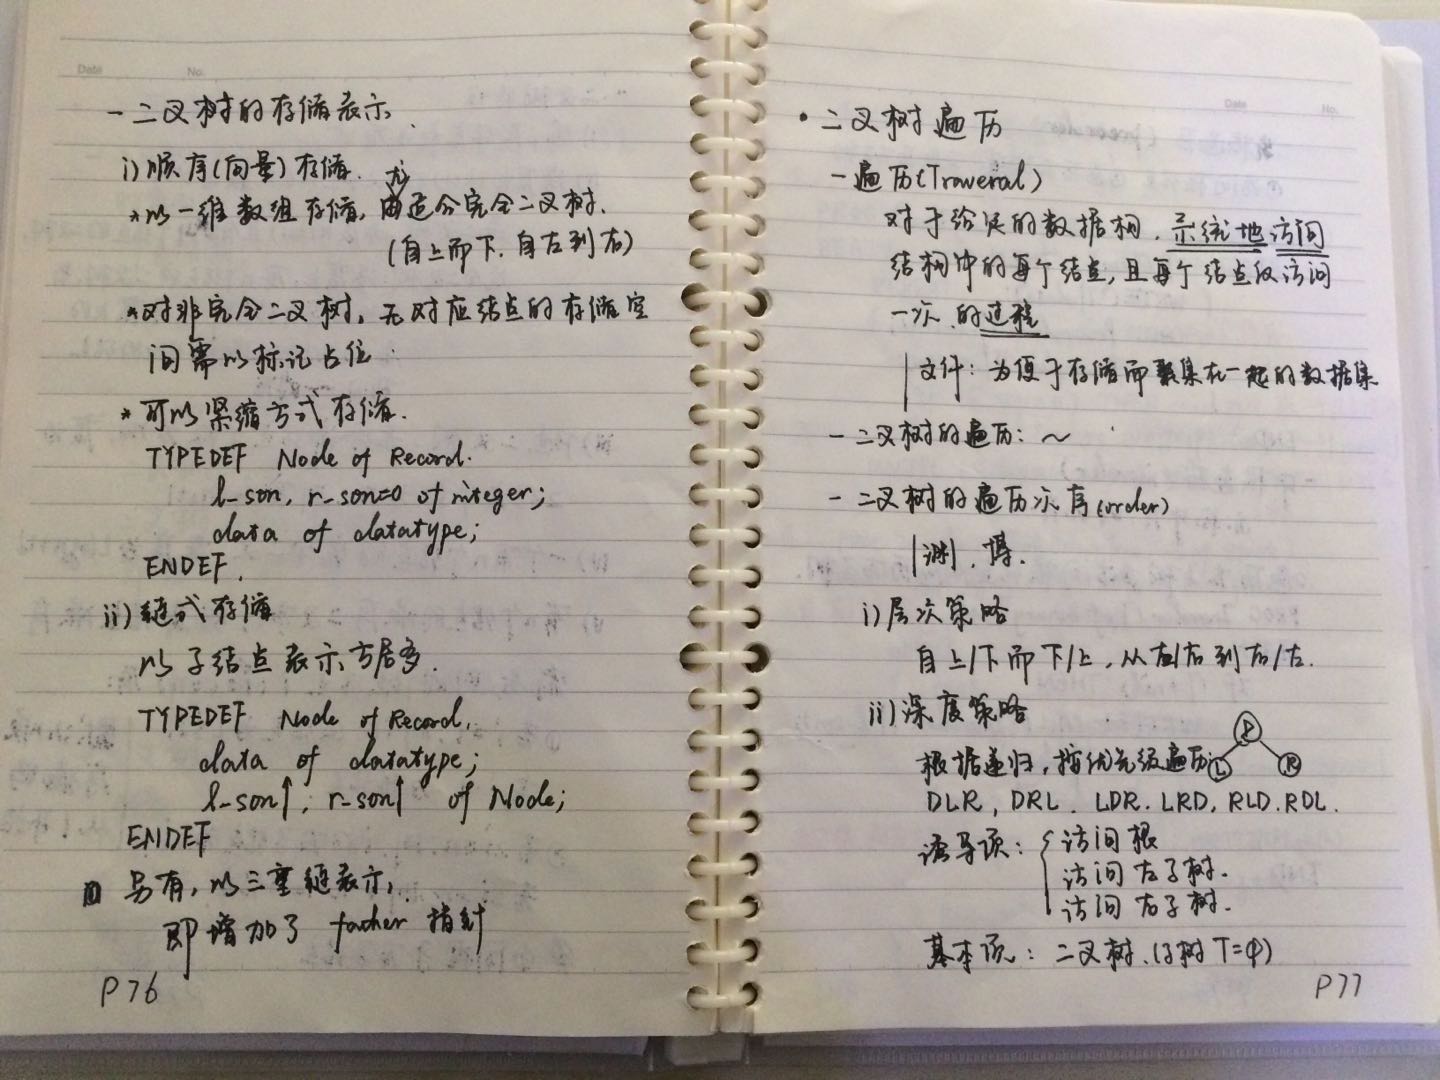 Date No.
- 二叉树的存储表示
i) 顺序(向量)存储.
* 以一维数组存储, 尤适合完全二叉树.
(自上而下. 自左到右)
* 对非完全二叉树, 无对应结点的存储空
间需以标记占位.
* 可以紧缩方式存储.
TYPEDEF Node of Record.
l_son, r_son=0 of integer;
data of datatype;
ENDEF.
ii) 链式存储
以子结点表示方居多.
TYPEDEF Node of Record.
data of datatype;
l_son↑, r_son↑ of Node;
ENDEF
另有, 以三重链表示,
即增加了 father 指针
P76
Date No.
• 二叉树遍历
- 遍历(Traveral)
对于给定的数据构, 系统地访问
结构中的每个结点, 且每个结点仅访问
一次的过程
文件: 为便于存储而聚集在一起的数据集
- 二叉树的遍历: ~
- 二叉树的遍历次序(order)
渊. 博.
i) 层次策略
自上/下而下/上, 从左/右到右/左.
ii) 深度策略
根据递归, 按优先级遍历
D
L R
DLR, DRL. LDR. LRD, RLD. RDL.
诱导项: { 访问根
访问左子树.
访问右子树.
基本项: 二叉树.(子树 T=Φ)
P77